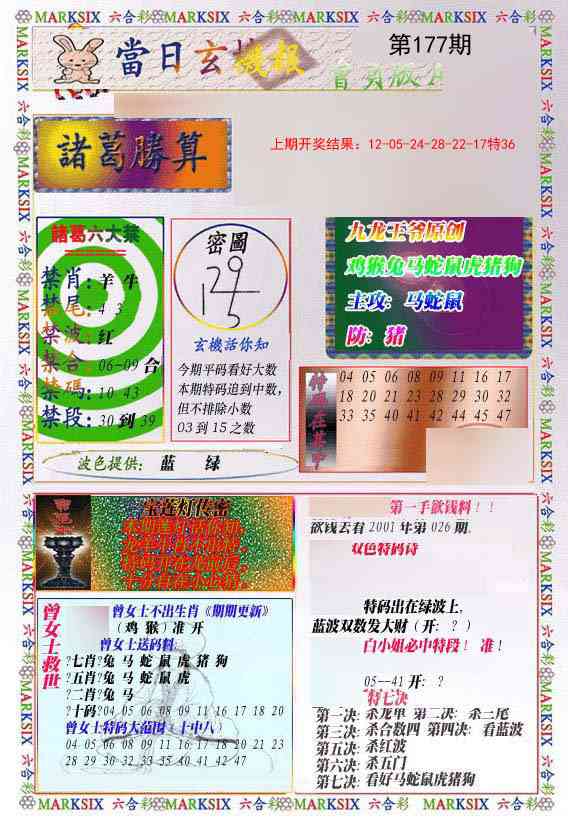 MARKSIX 六合彩 MARKSIX 六合彩 MARKSIX 六合彩 MARKSIX 六合彩
當日玄機报
第177期
諸葛勝算
上期开奖结果：12-05-24-28-22-17特36
諸葛六大禁
禁肖：羊 牛
禁尾：4 3
禁波：红
禁合：06-09 合
禁碼：10 43
禁段：30 到 39
密圖
玄機活你知
今期平码看好大数
本期特码追到中数，
但不排除小数
03 到 15 之数
九龙王爷原创
鸡猴兔马蛇鼠虎猪狗
主攻：马蛇鼠
防：猪
04 05 06 08 09 11 16 17
18 20 21 23 28 29 30 32
33 35 40 41 42 44 45 47
波色提供： 蓝 绿
宝莲灯传密
曾女士救世
曾女士不出生肖《期期更新》
（鸡 猴）准 开
曾女士送码料:
?七肖?兔 马 蛇 鼠 虎 猪 狗
?五肖?兔 马 蛇 鼠 虎
?二肖?兔 马
?十码?04 05 06 08 09 11 16 17 18 20
曾女士特码大范围（十中八）
04 05 06 08 09 11 16 17 18 20 21 23
28 29 30 32 33 35 40 41 42 47
第一手欲钱料！！
欲钱去看 2001 年第 026 期.
双色特码诗
特码出在绿波上，
蓝波双数发大财（开：？）
白小姐必中特段！ 准！
05--41 开：？
特七决
第一决：杀龙单 第二决：杀二尾
第三决：杀合数四 第四决：看蓝波
第五决：杀红波
第六决：杀五门
第七决：看好马蛇鼠虎猪狗
MARKSIX 六合彩 MARKSIX 六合彩 MARKSIX 六合彩 MARKSIX 六合彩